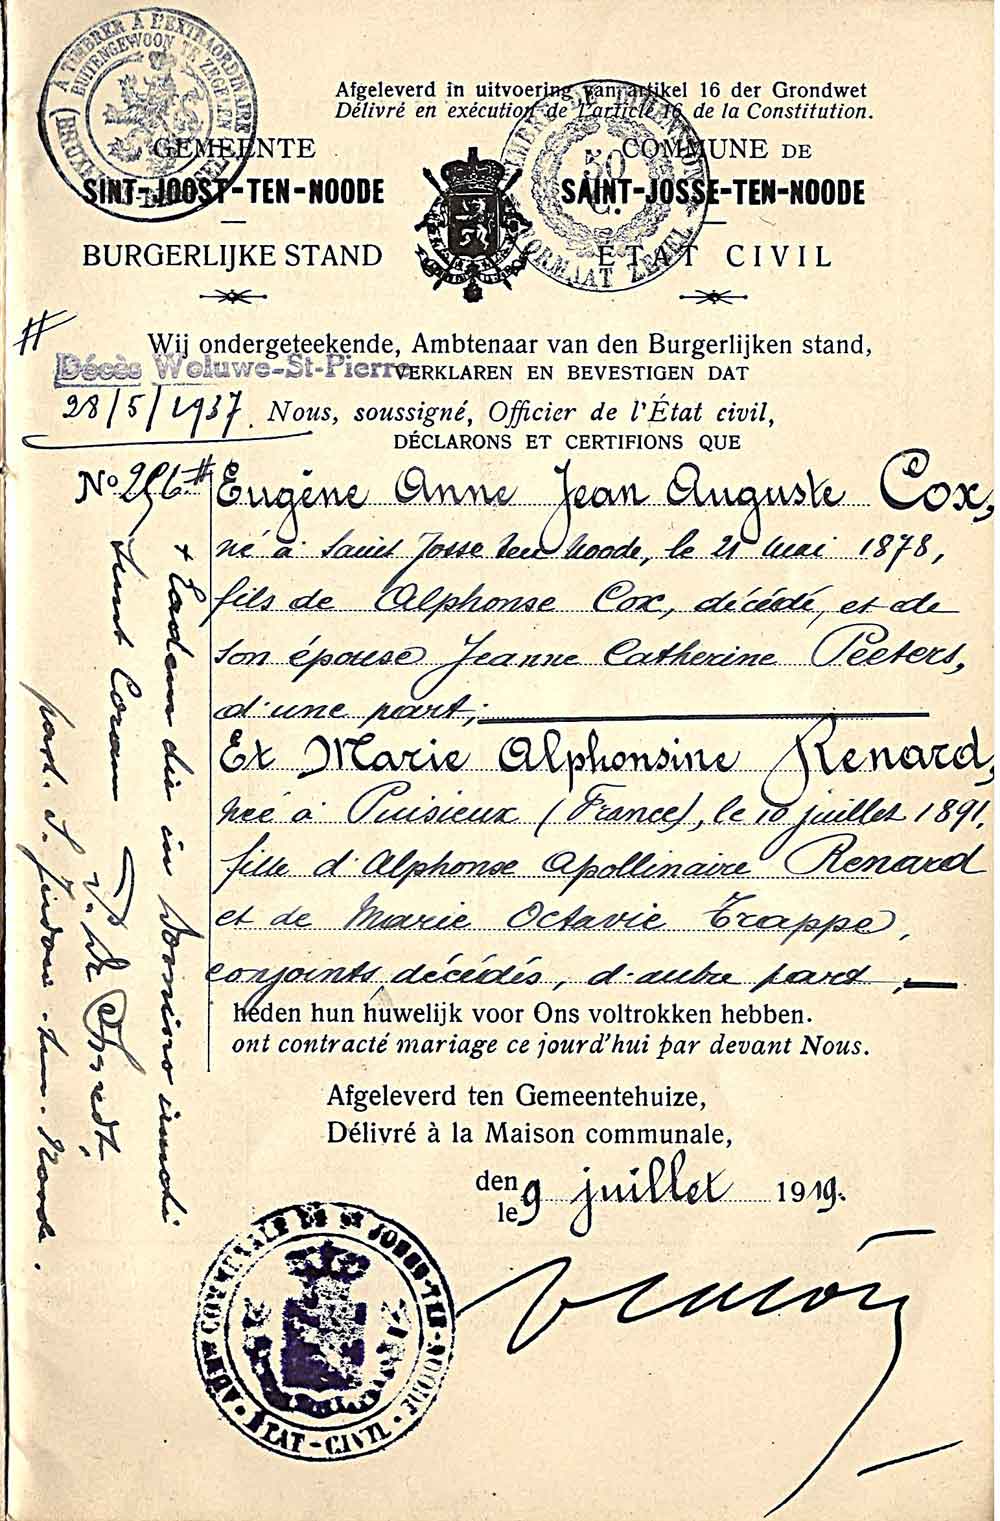 A TIMBRER A L'EXTRAORDINAIRE
BUITENGEWOON TE ZEGELEN
Afgeleverd in uitvoering van artikel 16 der Grondwet
Délivré en exécution de l'article 16 de la Constitution.
50
C.
GEMEENTE
SINT-JOOST-TEN-NOODE
BURGERLIJKE STAND
COMMUNE DE
SAINT-JOSSE-TEN-NOODE
ETAT CIVIL
Wij ondergeteekende, Ambtenaar van den Burgerlijken stand,
Décès Woluwe-St-Pierre
VERKLAREN EN BEVESTIGEN DAT
28/5/1937.
Nous, soussigné, Officier de l'État civil,
DÉCLARONS ET CERTIFIONS QUE
No
Eugène Anne Jean Auguste Cox,
né à Saint Josse ten Noode, le 21 mai 1878,
fils de Alphonse Cox, décédé, et de
son épouse Jeanne Catherine Peeters,
d'une part;
Et Marie Alphonsine Renard,
née à Puisieux (France), le 10 juillet 1891,
fille d'Alphonse Apollinaire Renard
et de Marie Octavie Trappe,
conjoints, décédés, d'autre part,
heden hun huwelijk voor Ons voltrokken hebben.
ont contracté mariage ce jourd'hui par devant Nous.
Afgeleverd ten Gemeentehuize,
Délivré à la Maison communale,
den
le 9 juillet 1919.
+ Eadem die in Domino iuncti
sunt Coram
ADM COMMUNALE DE ST JOSSE-TEN-NOODE
ETAT-CIVIL